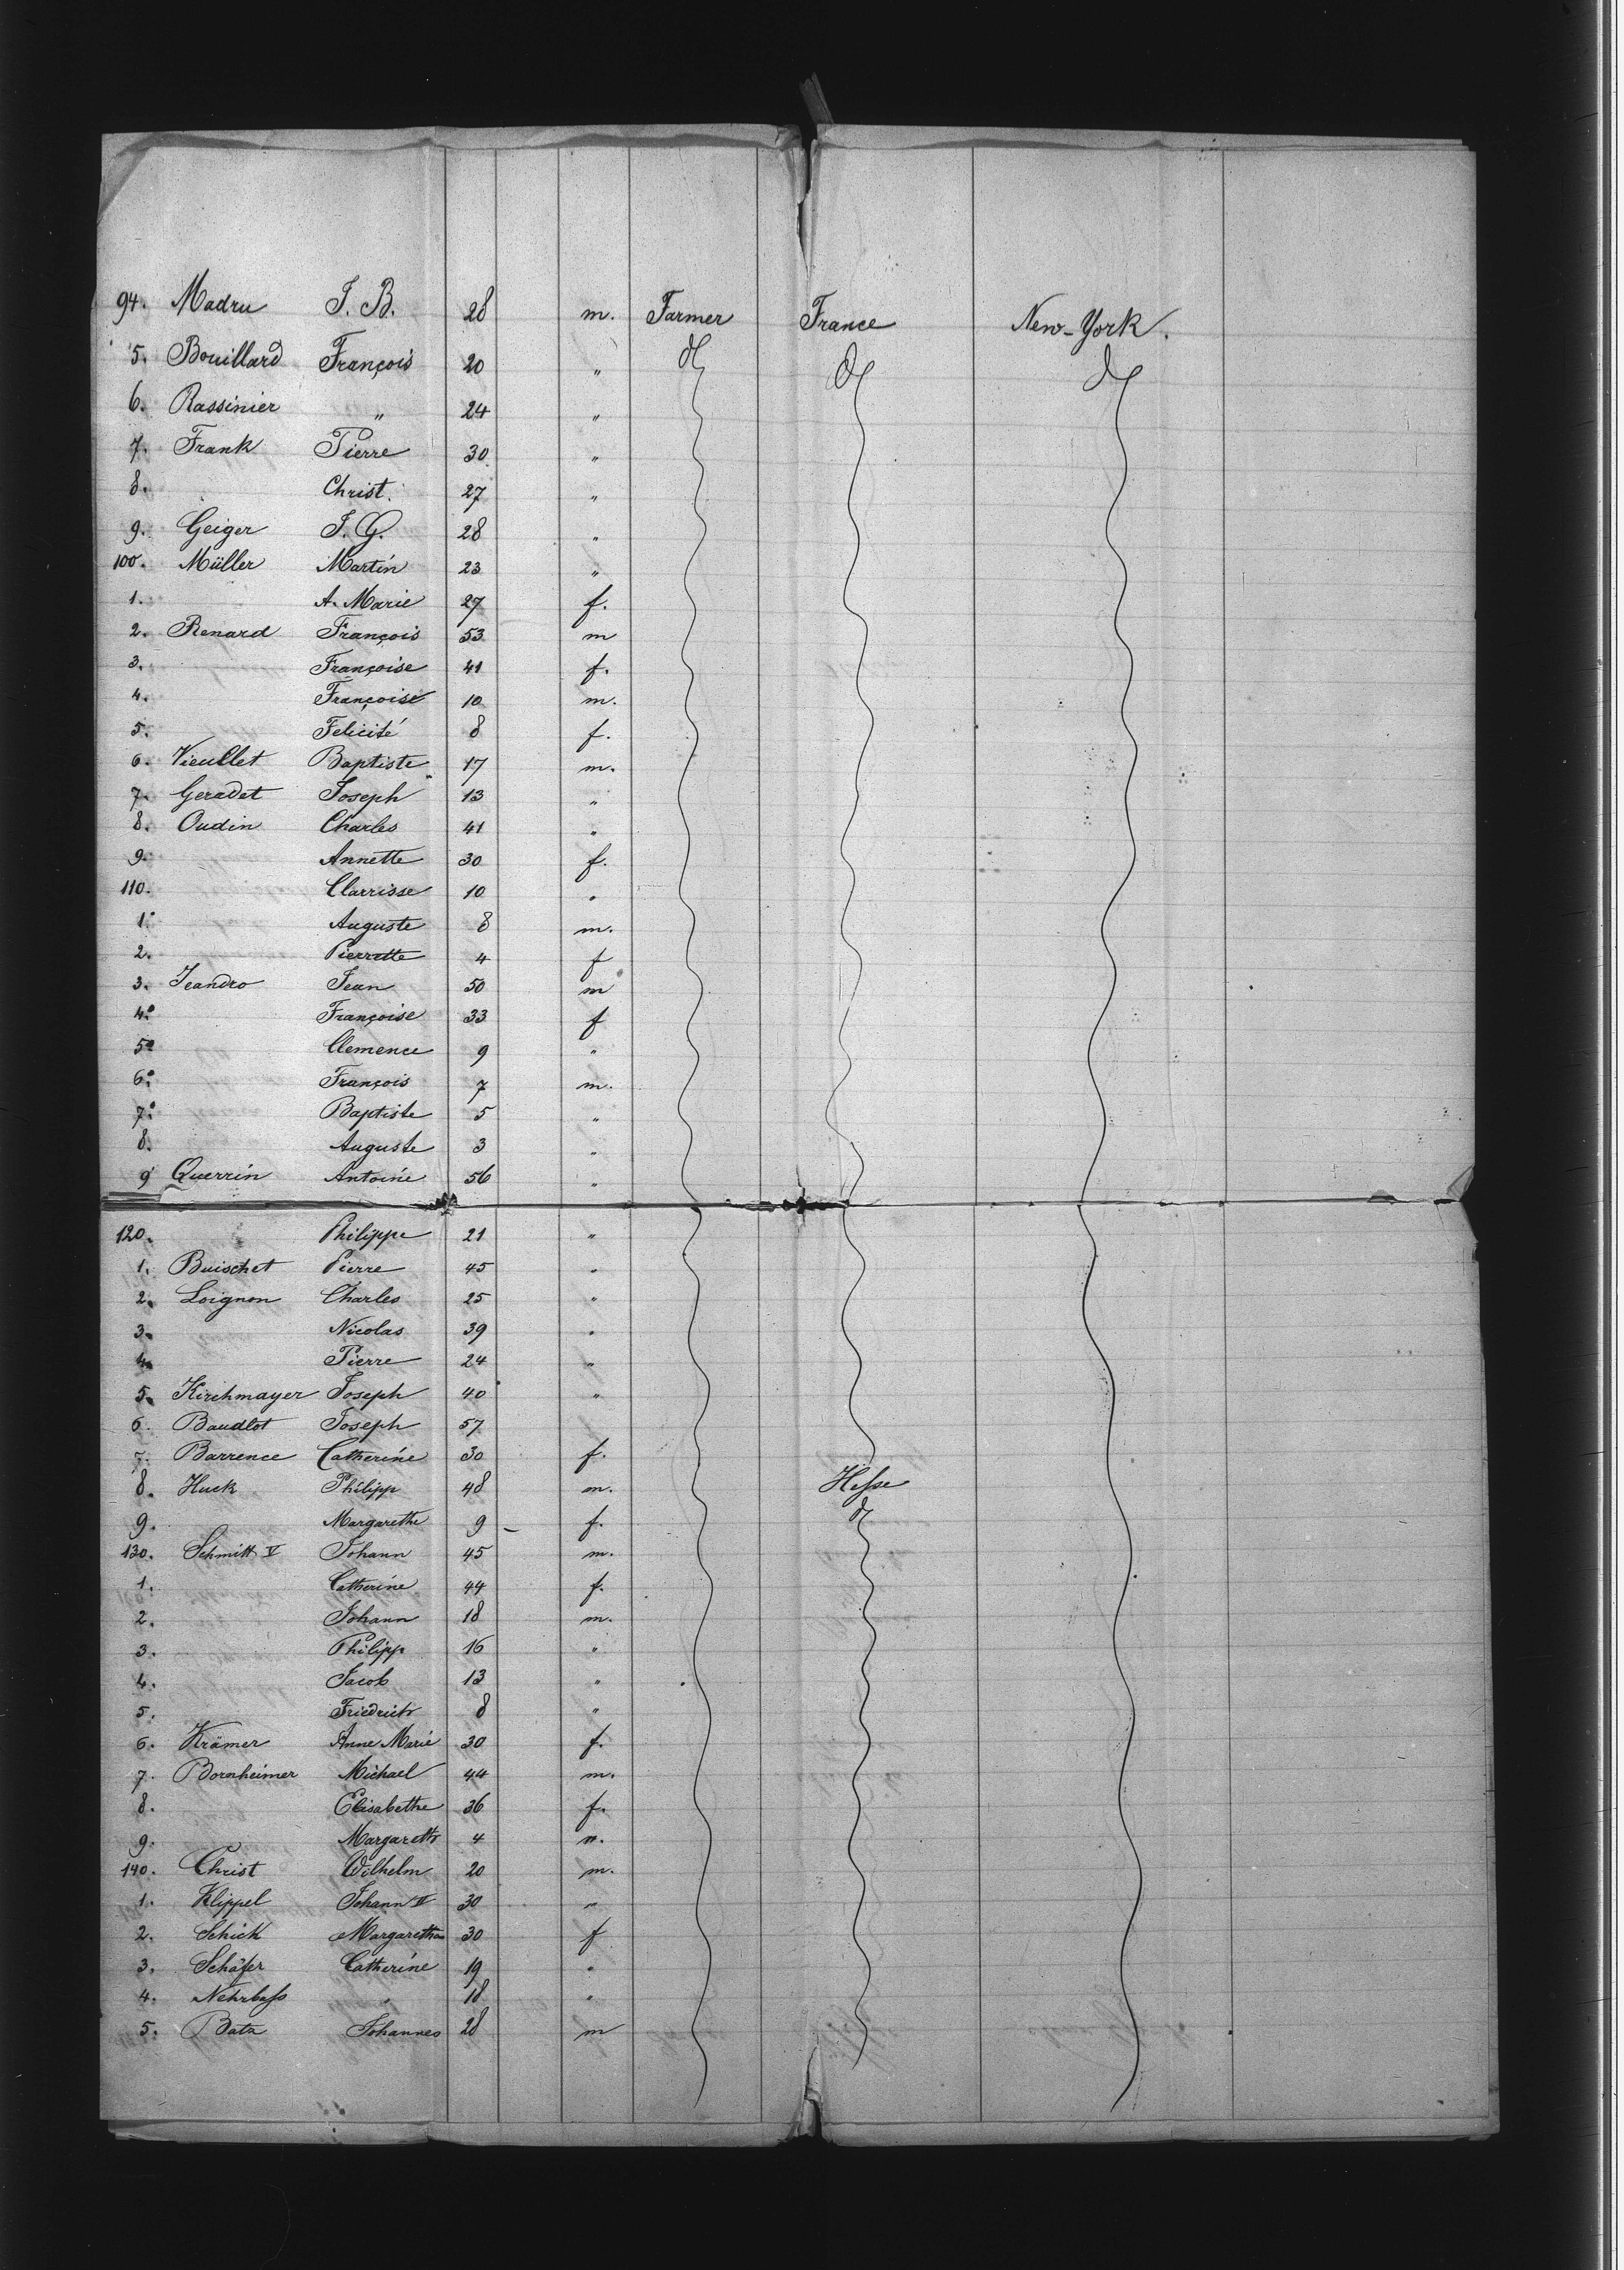 94. Madru J. B. 28 m. Farmer France New-York.
5. Bouillard François 20 " d° d° d°
6. Rassinier " 24 "
7. Frank Pierre 30 "
8. Christ. 27 "
9. Geiger J. G. 28 "
100. Müller Martin 23 "
1. A. Marie 27 f.
2. Renard François 53 m
3. Françoise 41 f.
4. Françoise 10 m.
5. Felicité 8 f.
6. Vieullet Baptiste 17 m.
7. Geradet Joseph 13 "
8. Oudin Charles 41 "
9. Annette 30 f.
110. Clarrisse 10 "
1. Auguste 8 m.
2. Pierrette 4 f
3. Jeandro Jean 50 m
4. Françoise 33 f
5. Clemence 9 "
6. François 7 m.
7. Baptiste 5 "
8. Auguste 3 "
9 Querrin Antoine 56 "
120. Philippe 21 "
1. Buischet Pierre 45 "
2. Loignon Charles 25 "
3. Nicolas 39 "
4. Pierre 24 "
5. Kirchmayer Joseph 40 "
6. Baudlot Joseph 57
7. Barrence Catherine 30 f.
8. Huck Philipp 48 m. Hesse
9. Margarethe 9 – f. d°
130. Schmitt V Johann 45 m.
1. Catherine 44 f.
2. Johann 18 m.
3. Philipp 16 "
4. Jacob 13 "
5. Friedrich 8 "
6. Krämer Anne Marie 30 f.
7. Bornheimer Michael 44 m.
8. Elisabethe 36 f.
9. Margareth 4 ".
140. Christ Wilhelm 20 m.
1. Klippel Johann II 30 "
2. Schick Margaretha 30 f
3. Schäfer Catherine 19 "
4. Nehrbass " 18 "
5. Batz Johannes 28 m